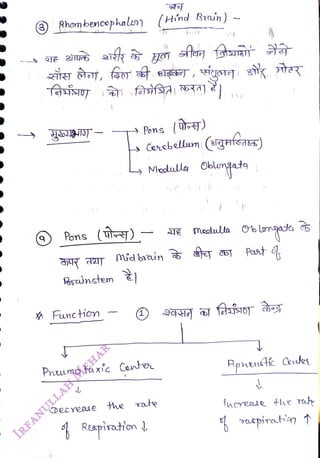 पश्च
③ Rhombencephalon (Hind Brain) -
→ यह आपके शरीर के मूल जीवन क्रियाओं जैसे
सांस लेना, दिल की धड़कन, संतुलन और मोटर
नियंत्रण को नियंत्रित करता है|
→ मुख्यभाग - → Pons (पोन्स)
→ Cerebellum (अनुमस्तिष्क)
→ Medulla Oblongata
ⓐ Pons (पोन्स) - यह medulla Oblongata के
ऊपर तथा Midbrain के बीच का Part of
Brainstem है|
* Function - ① श्वसन का नियंत्रण केन्द्र
Pneumotaxic Center Apneustic Center
Decrease the rate Increase the rate
of Respiration ↓ of raspiration ↑
IRFANULLAH MEHAR